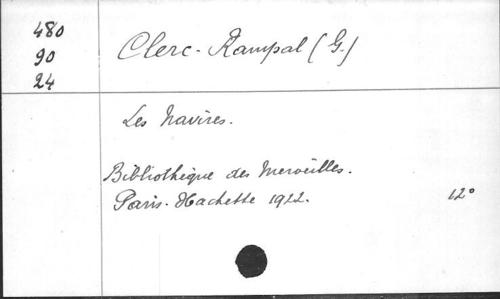 480
90
24
Clerc-Rampal (G.)
Les Navires.
Bibliothèque des Merveilles.
Paris. Hachette 1922. 12°